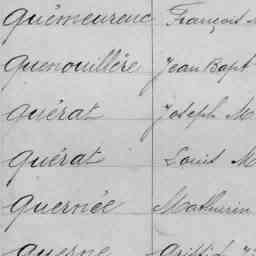 Quémeureuc François
Quenouillère Jean Bapt
Quérat Joseph M
Quérat Louis M
Quernée Mathurin
Querne